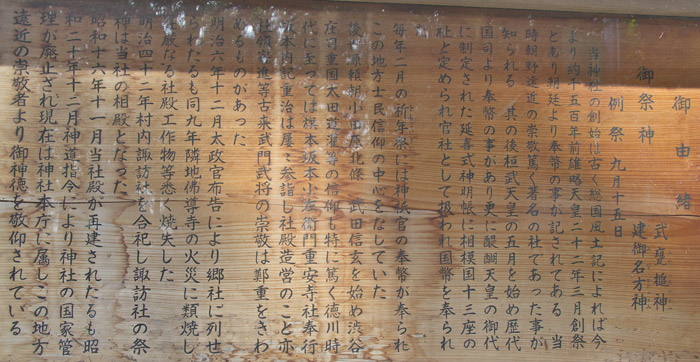 御由緒
御祭神 武甕槌神
建御名方神
例祭 九月十五日
当神社の創始は古く総国風土記によれば今
より約千五百年前雄略天皇二十二年三月創祭
ともあり朝廷より奉幣の事が記されてある 当
時朝野遠近の崇敬篤く著名の社であった事が
知られる 其の後桓武天皇の五月を始め歴代
国司より奉幣の事があり更に醍醐天皇の御代
に制定された延喜式神明帳に相模国十三座の
社と定められ官社として扱われ国幣を奉られ
毎年二月の祈年祭には神祇官の奉幣が奉られ
この地方士民信仰の中心をなしていた
後 源頼朝小田原北條 武田信玄を始め渋谷
庄司重国太田道灌等の信仰も特に篤く徳川時
代に至っては 坂本小左衛門重安寺社奉行
坂本内記重治は屡々参詣し社殿造営のこと亦
社領寄進等古来武門武将の崇敬は鄭重をきわ
めるものがあった
明治六年十二月太政官布告により郷社に列せ
られたるも同九年隣地佛導寺の火災に類焼し
荘厳なる社殿工作物等悉く焼失した
明治四十二年村内諏訪社を合祀し諏訪社の祭
神は当社の相殿となった
昭和十六年十一月当社殿が再建されたるも昭
和二十年十二月神道指令により神社の国家管
理が廃止され現在は神社本庁に属しこの地方
遠近の崇敬者より御神徳を敬仰されている